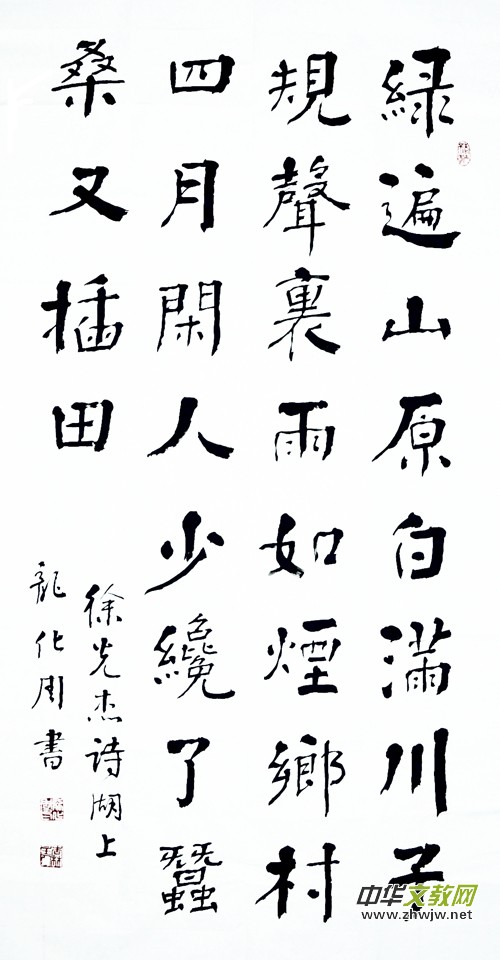 緑遍山原白滿川子
規聲裏雨如煙鄉村
四月閑人少纔了蠶
桑又插田
徐光杰詩湖上
龍化周書
中华文教网
www.zhwjw.net